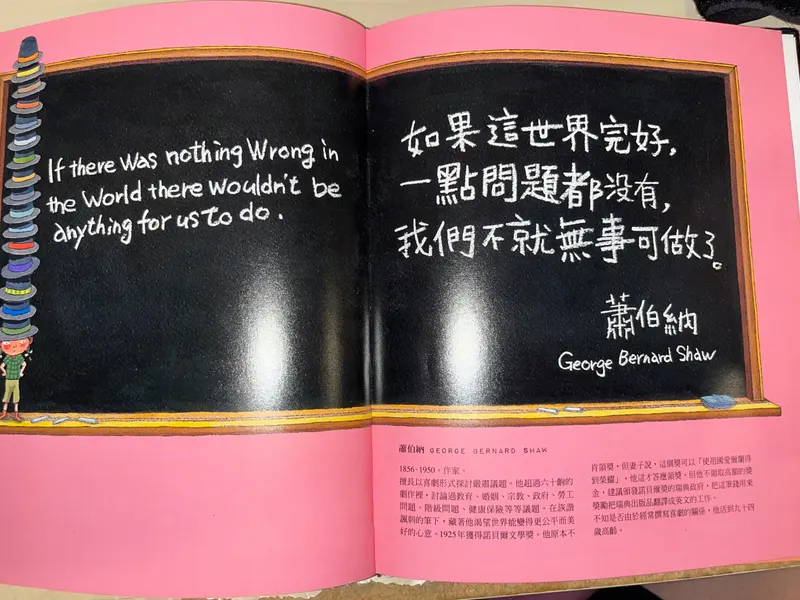 If there was nothing wrong in
the World there wouldn't be
anything for us to do.
如果這世界完好,
一點問題都没有,
我們不就無事可做了。
蕭伯納
George Bernard Shaw
蕭伯納 GEORGE BERNARD SHAW
1856-1950。作家。
擅長以喜劇形式探討嚴肅議題。他超過六十齣的
劇作裡,討論過教育、婚姻、宗教、政府、勞工
問題、階級問題、健康保險等等議題。在詼諧
諷刺的筆下,藏著他渴望世界能變得更公平而美
好的心意。1925年獲得諾貝爾文學獎。他原本不
肯領獎,但妻子說,這個獎可以「使祖國愛爾蘭得
到榮耀」,他這才答應領獎。但他不領取高額的獎
金,建議頒發諾貝爾獎的瑞典政府,把這筆錢用來
獎勵把瑞典出版品翻譯成英文的工作。
不知是否由於經常撰寫喜劇的關係,他活到九十四
歲高齡。